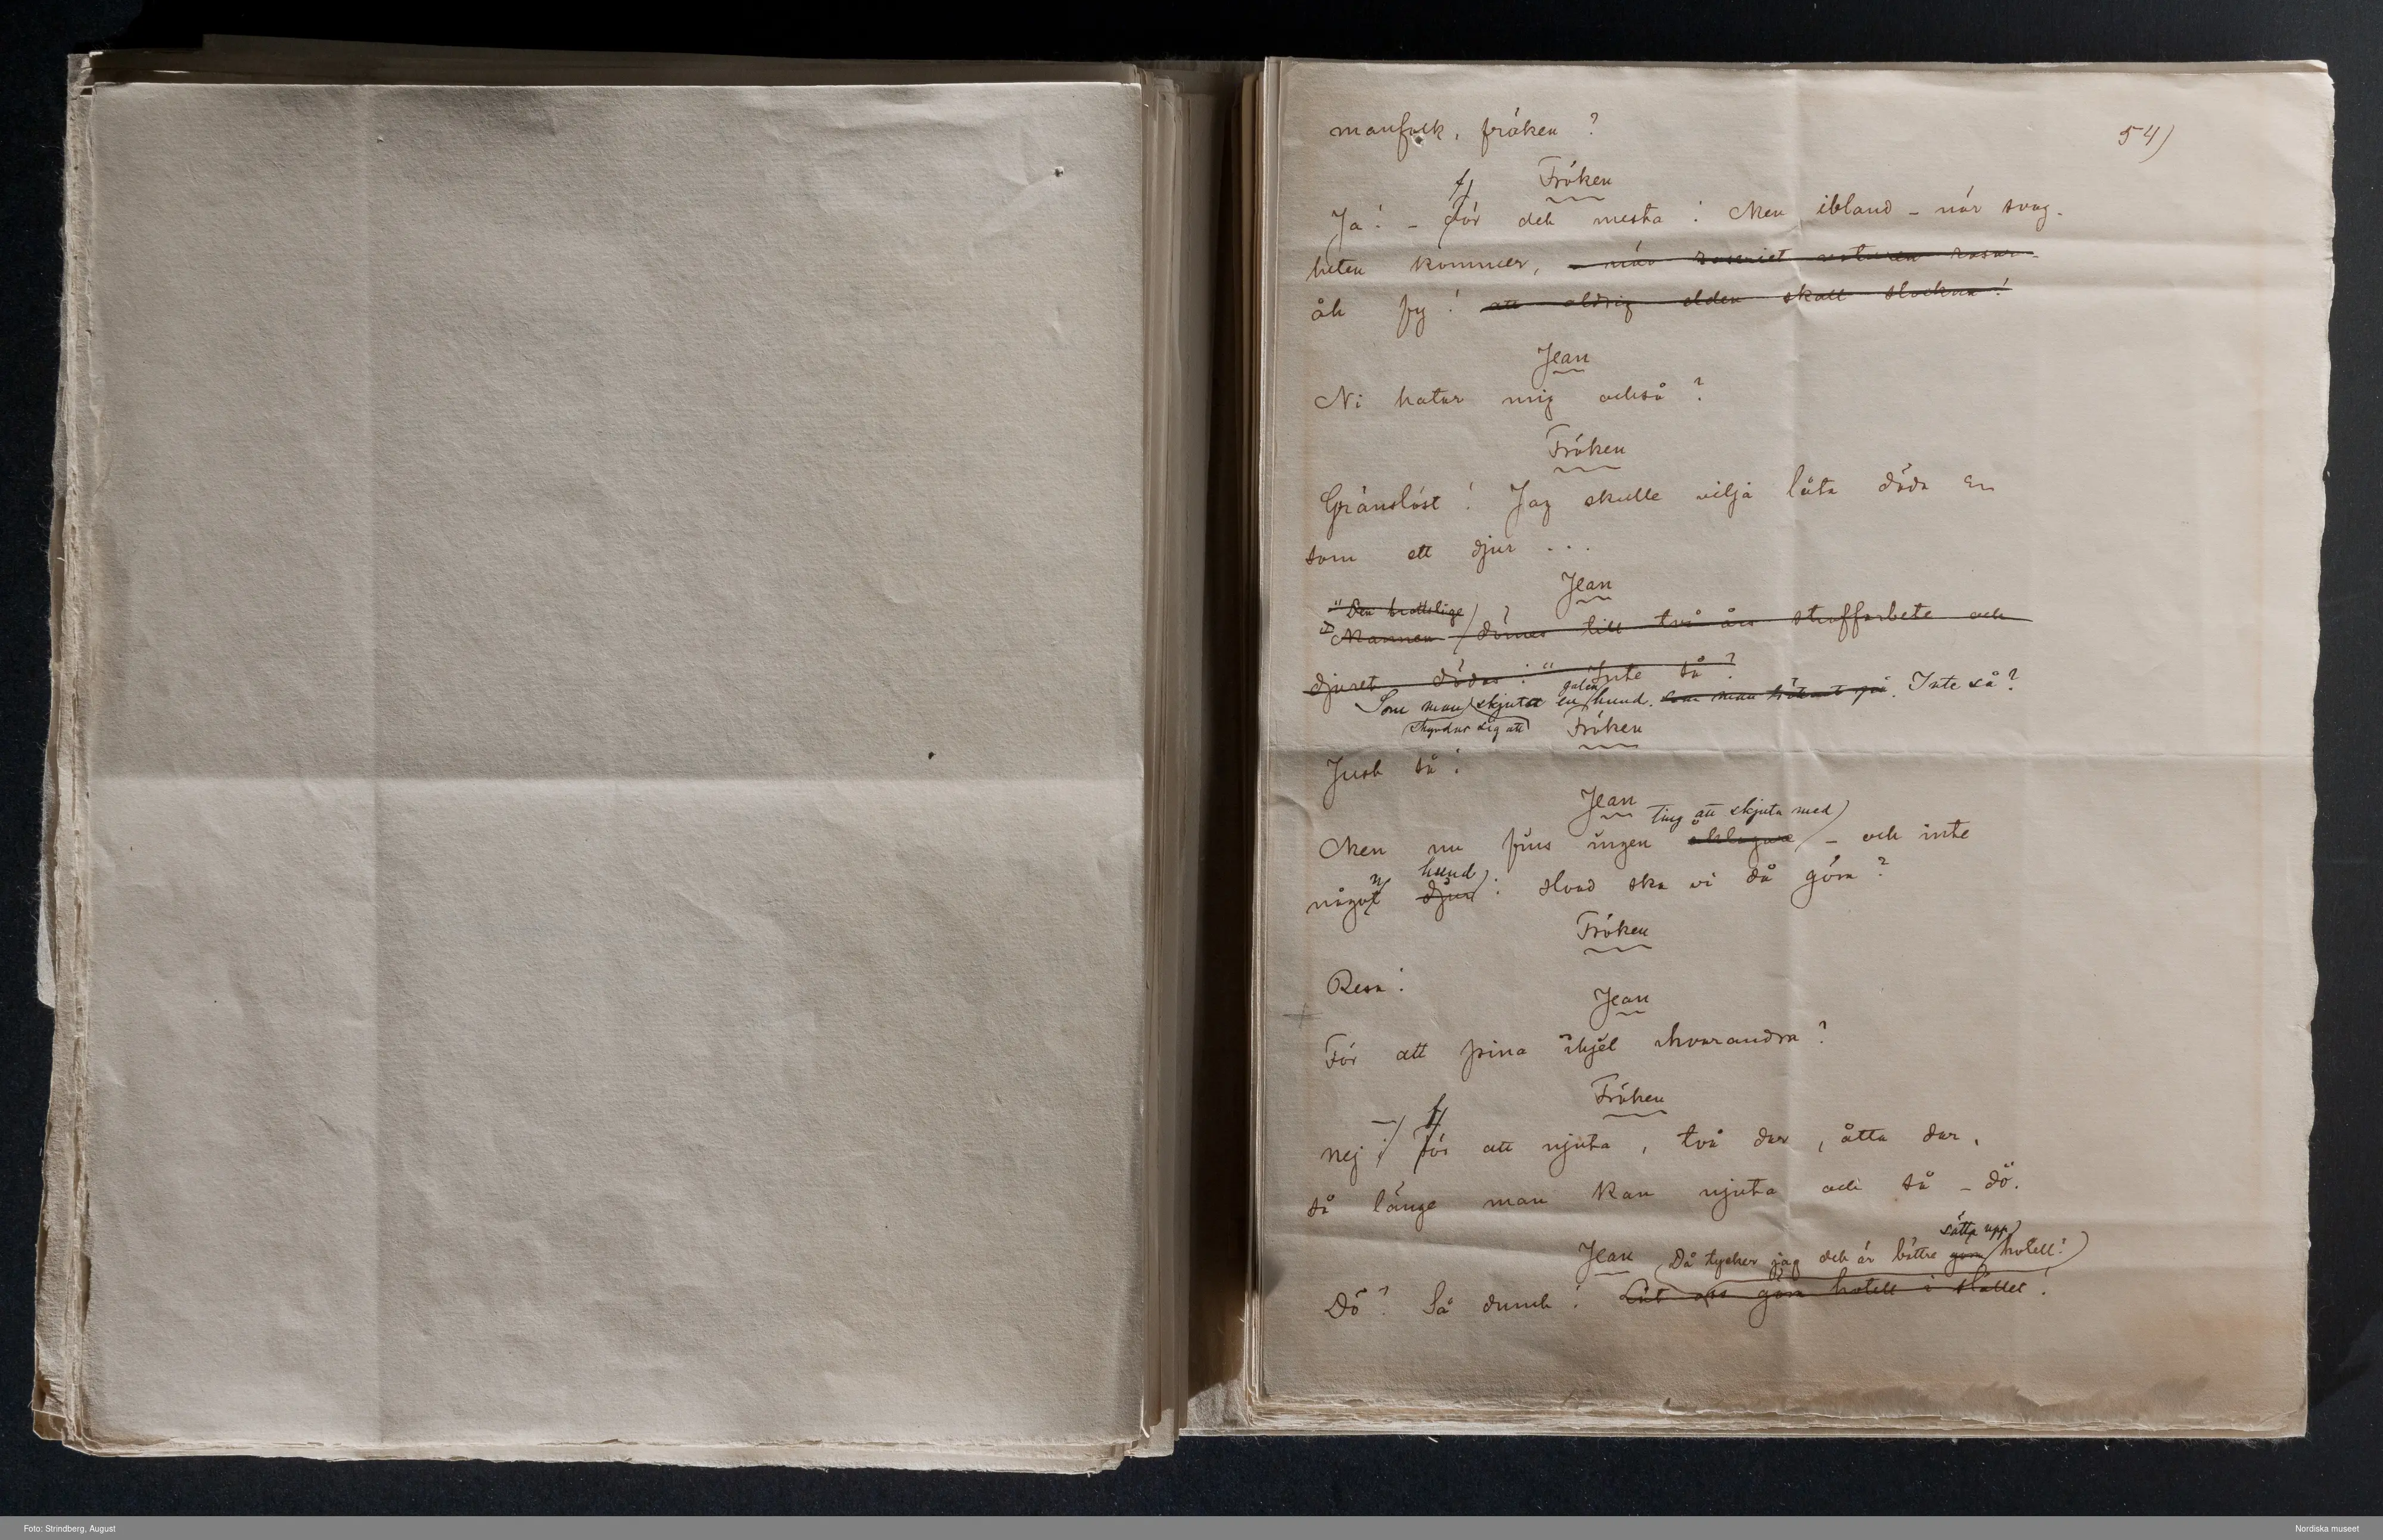 manfolk, fröken?
54)
Fröken
f
Ja! - För det mesta! Men ibland - när svag-
heten kommer, - när raseriet naturen rasar -
åh fy! att aldrig elden skall slockna!
Jean
Ni hatar mig också?
Fröken
Gränslöst! Jag skulle vilja låta döda Er
som ett djur . . .
Jean
"Den brottslige
Mannen dömes till två års straffarbete och
djuret dödas!" Inte så?
galen
Som man skjuter en hund. som man på. Inte så?
skyndar sig att
Fröken
Just så!
Jean
ting att skjuta med
Men nu fins ingen åklagare - och inte
n hund
något djur! Hvad ska vi då göra?
Fröken
Resa!
Jean
För att pina ihjel hvarandra?
Fröken
- f
Nej! För att njuta, två dar, åtta dar,
så länge man kan njuta och så - dö.
sätta upp
Jean Då tycker jag det är bättre göra hotell!
Dö? Så dumt! Låt oss göra hotell i stället!
Foto: Strindberg, August
Nordiska museet